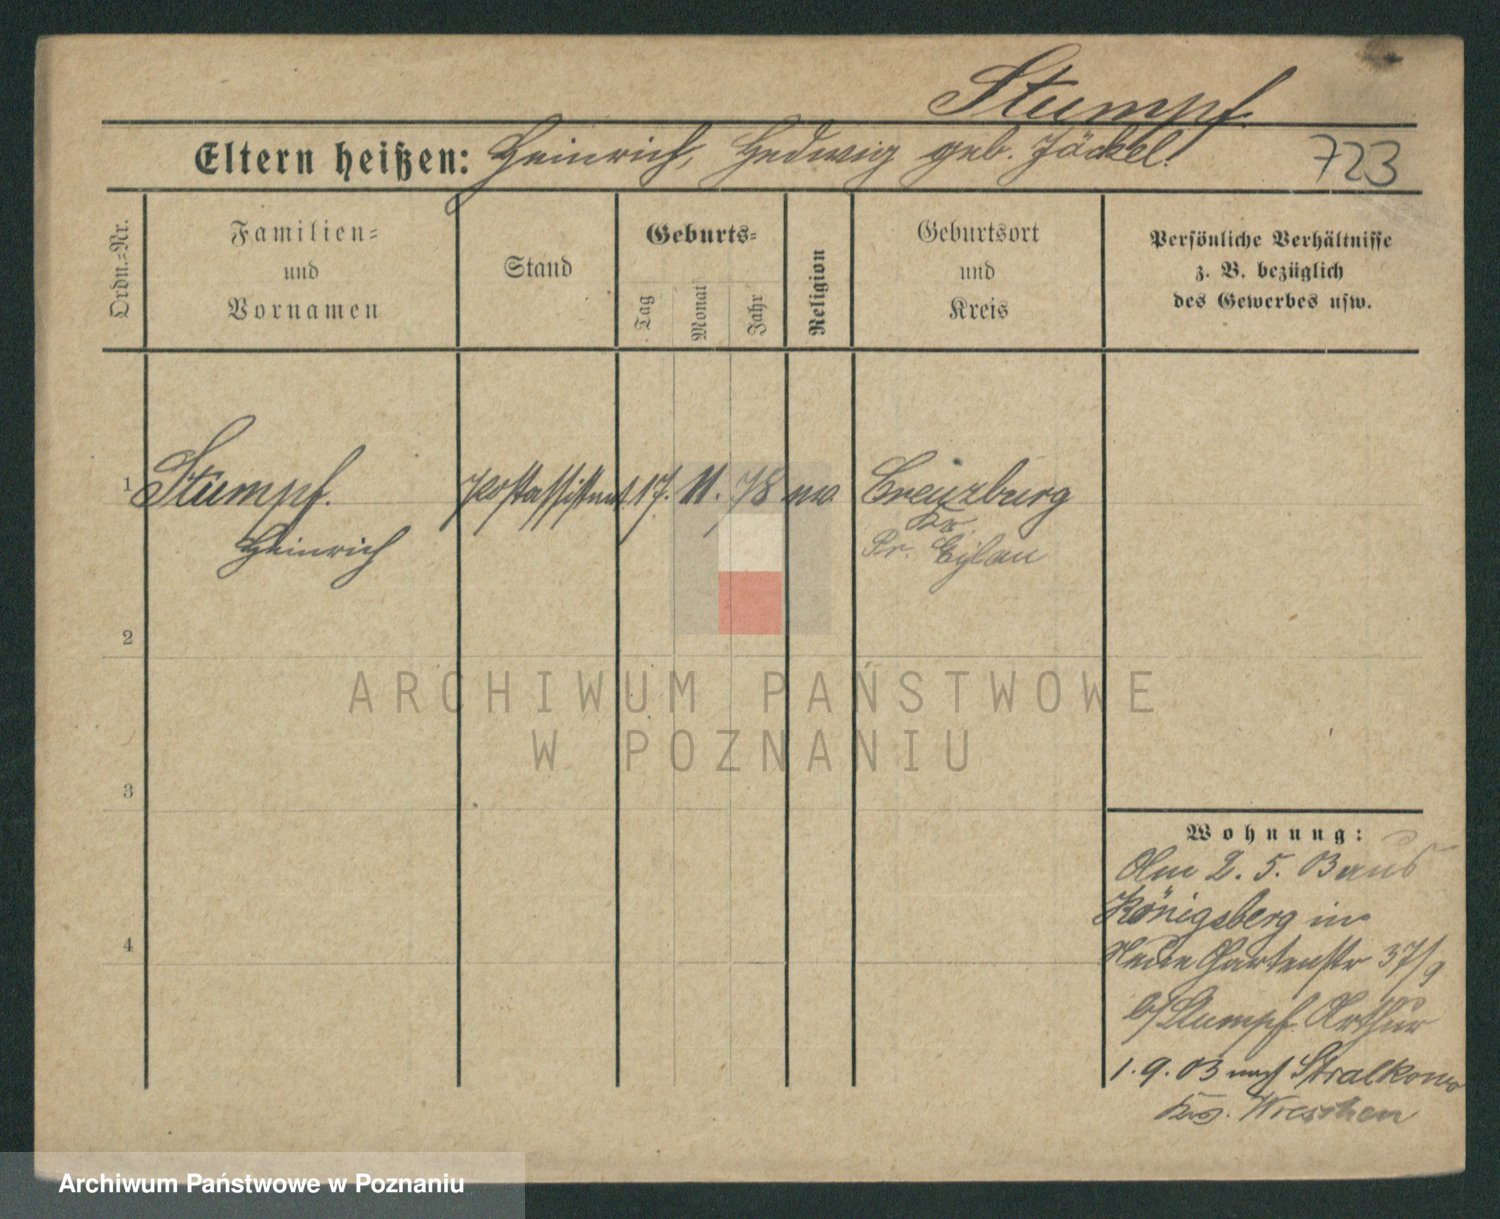 Stumpf.
Eltern heißen: Heinrich, Hedwig geb. Jäckel.
723
Ordn.-Nr.
Familien-
und
Vornamen
Stand
Geburts-
Tag
Monat
Jahr
Religion
Geburtsort
und
Kreis
Persönliche Verhältnisse
z. B. bezüglich
des Gewerbes usw.
1 Stumpf. Postassistent 17. 11. 78 Creuzburg
Heinrich Kr.
Pr. Eylau
2
3
4
Wohnung:
Am 2. 5. 03 aus
Königsberg in
Neue Gartenstr 37/9
b/ Stumpf Arthur
1. 9. 03 nach Stralkowo
Krs. Wreschen
ARCHIWUM PAŃSTWOWE
W POZNANIU
Archiwum Państwowe w Poznaniu